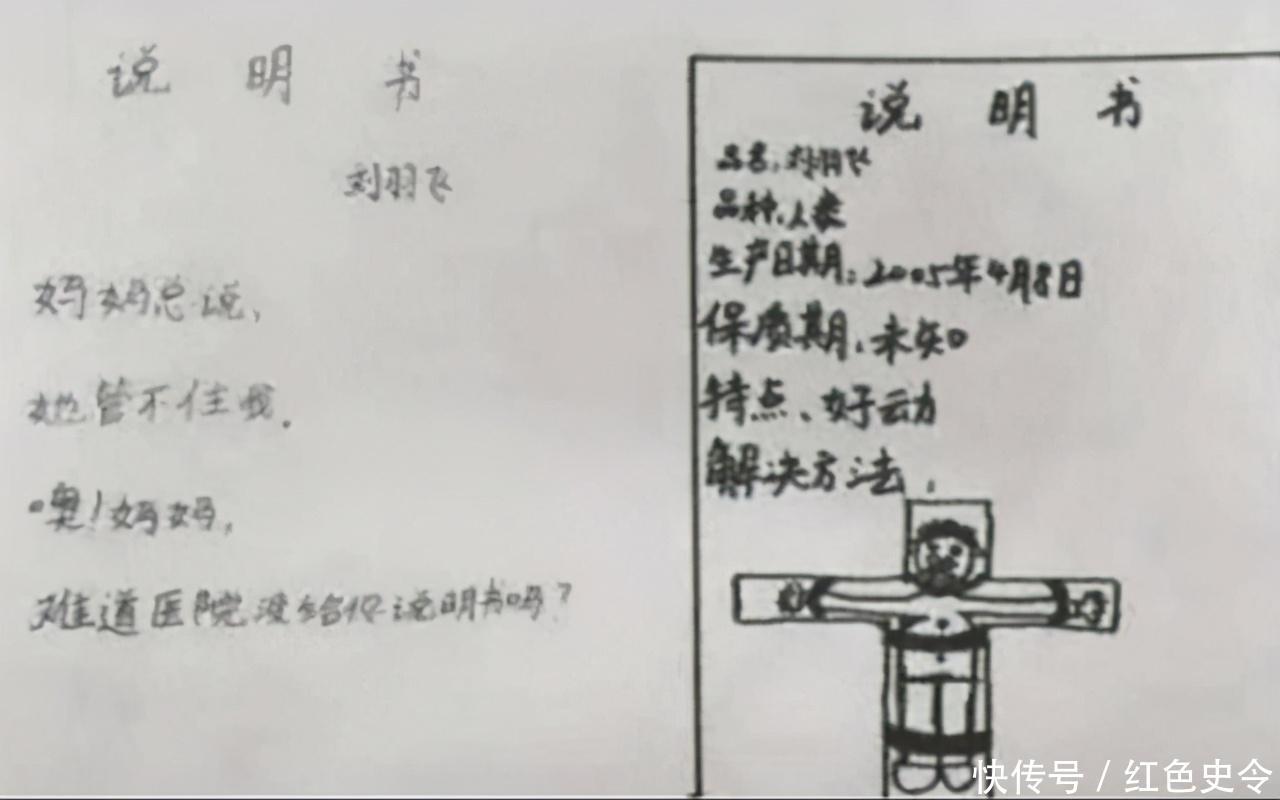 说 明 书
刘羽飞
妈妈总说,
她管不住我.
噢!妈妈,
难道医院没给你说明书吗?
说 明 书
品名:刘羽飞
品种:人类
生产日期:2005年4月8日
保质期:未知
特点:好动
解决方法:
快传号 / 红色史令